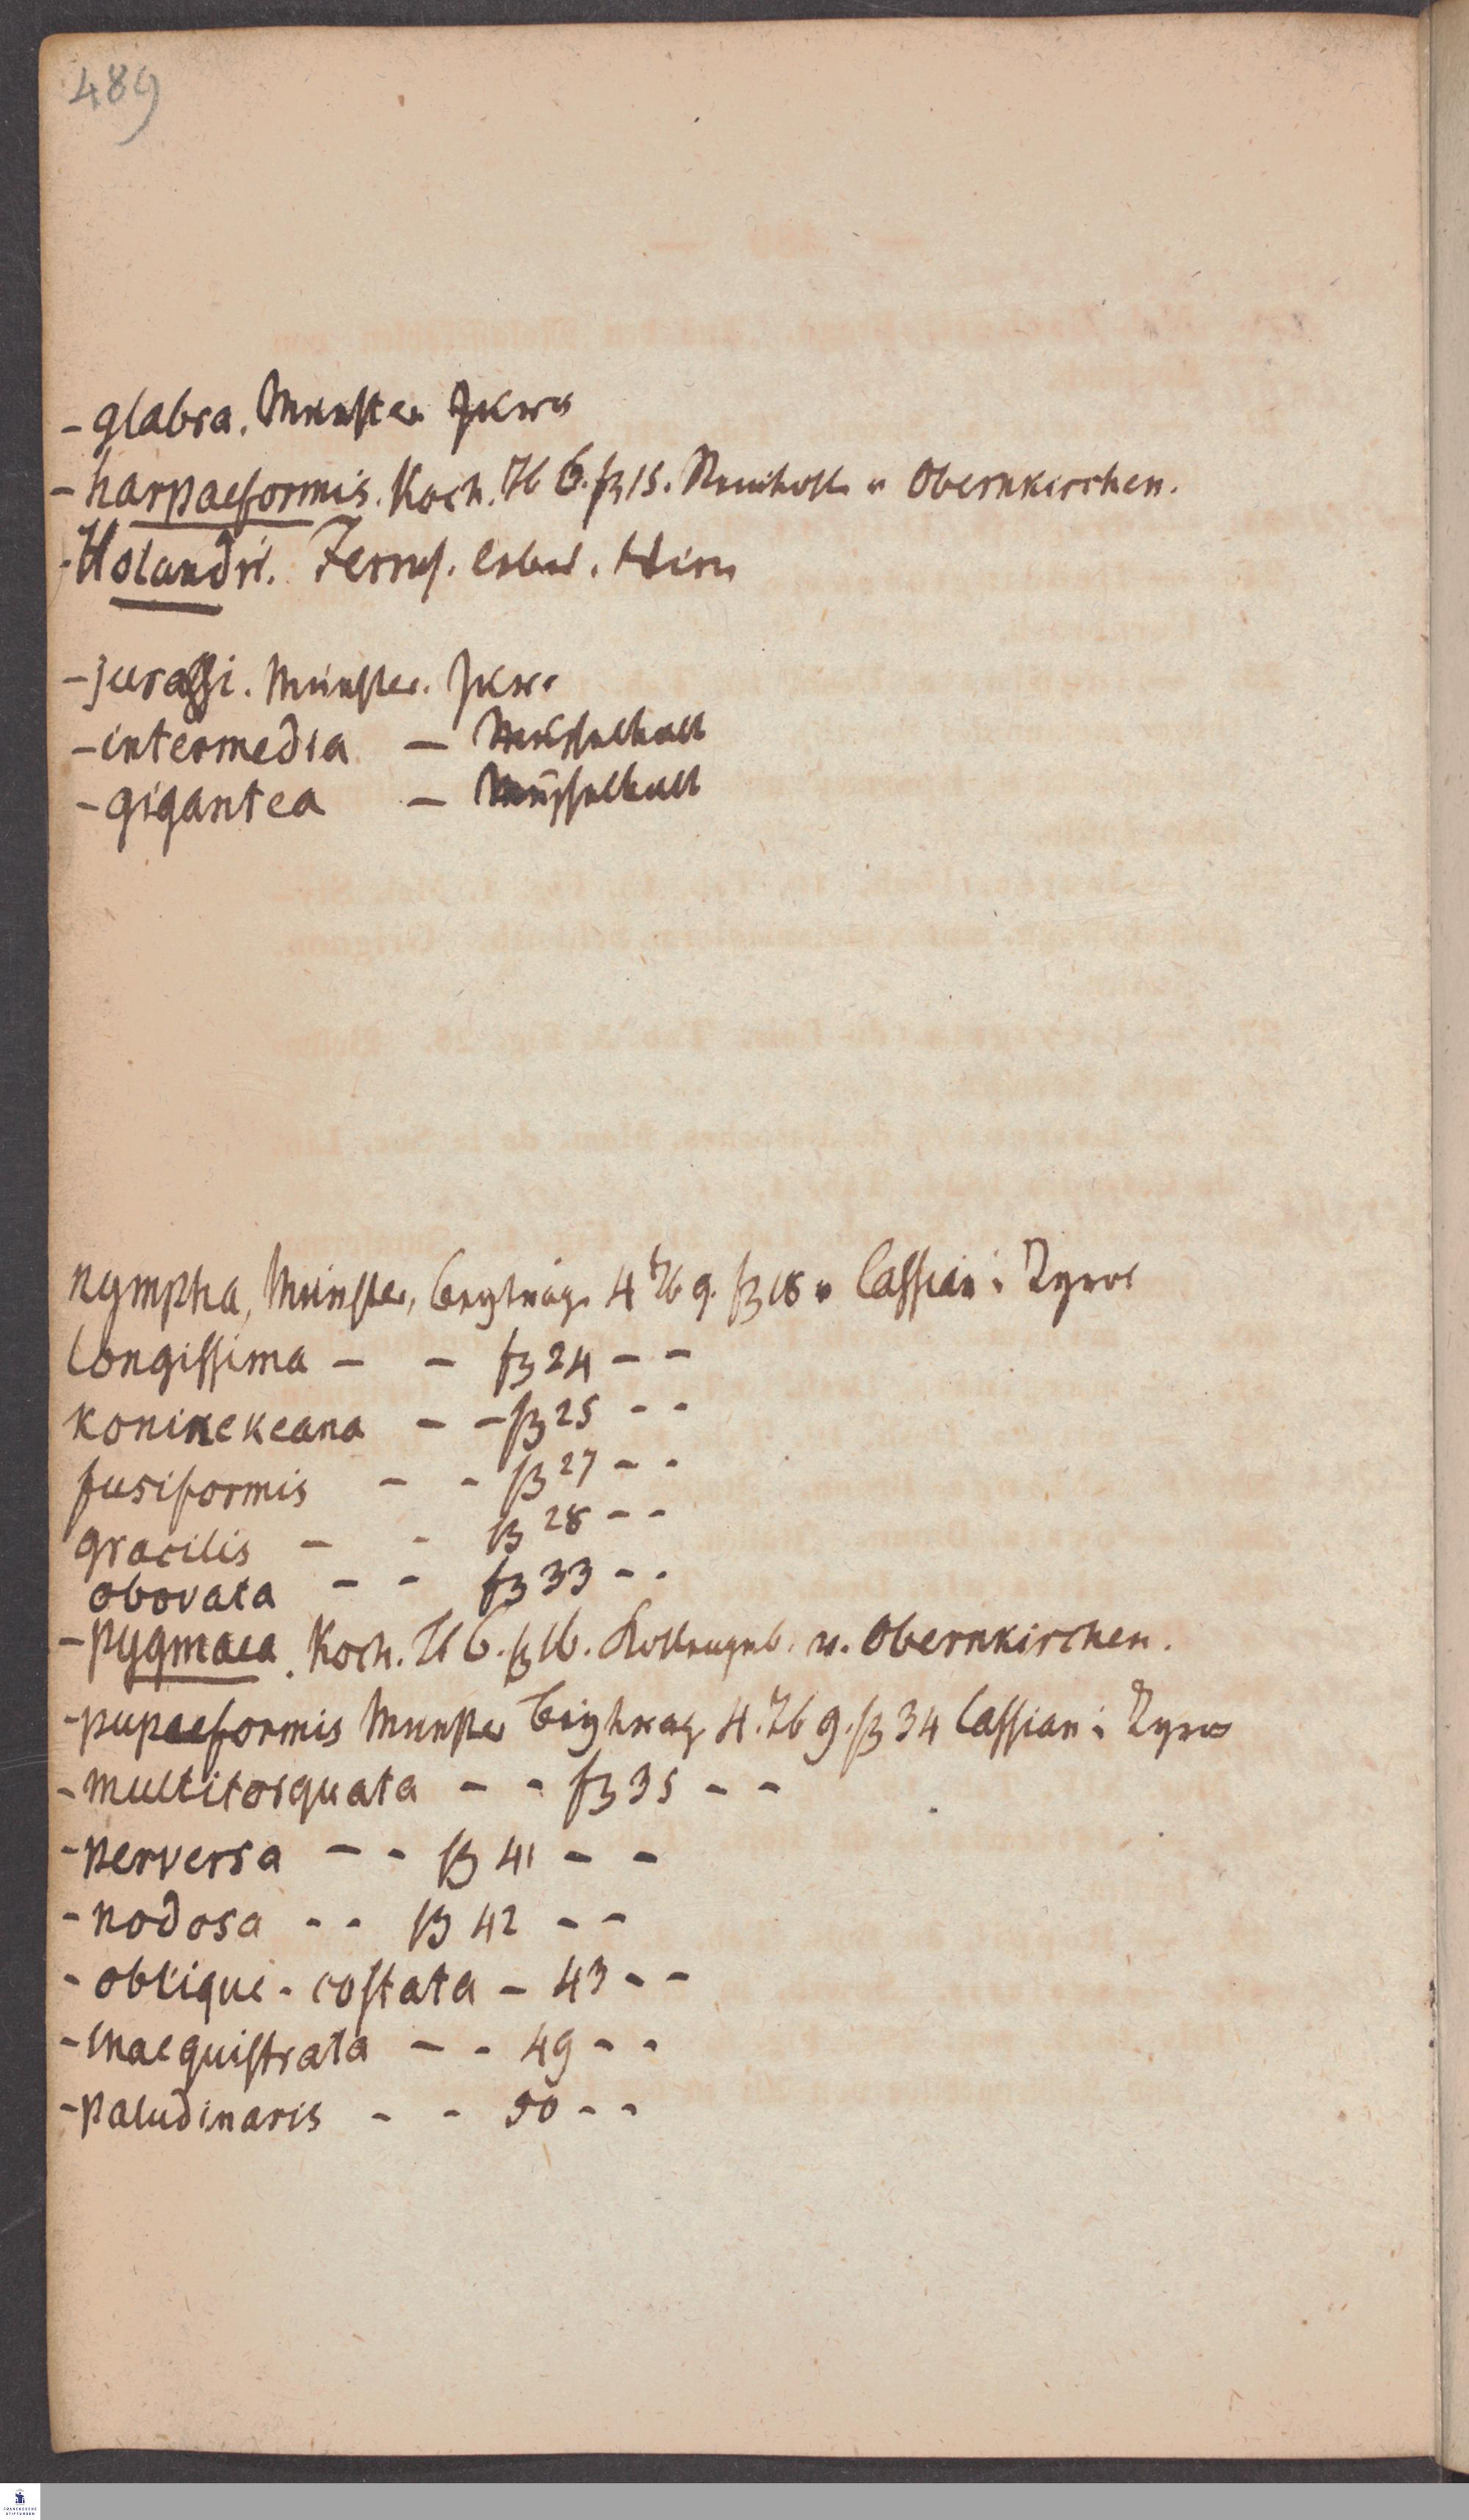 489
- glabra. Münster Jura
- harpaeformis. Koch. Tb 6. fig 15. v Obernkirchen.
- Holandri. Feruss.
- jurassi. Münster. Jura
- intermedia — Muschelkalk
- gigantea — Muschelkalk
nympha, Münster, Beytrag 4 Tb 9. fig 18 v Cassian i Tyrol
longissima - - fig 24 - -
koninckeana - - fig 25 - -
fusiformis - - fig 27 - -
gracilis - - fig 28 - -
obovata - - fig 33 - -
- pygmaea. Koch. Tb 6. fig 16. v. Obernkirchen.
- pupaeformis Münster Beytrag 4. Tb 9. fig 34 Cassian i Tyrol
- multitorquata - - fig 35 - -
- perversa - - fig 41 - -
- nodosa - - fig 42 - -
- oblique-costata - 43 - -
- inaequistrata - - 49 - -
- paludinaris - - 50 - -